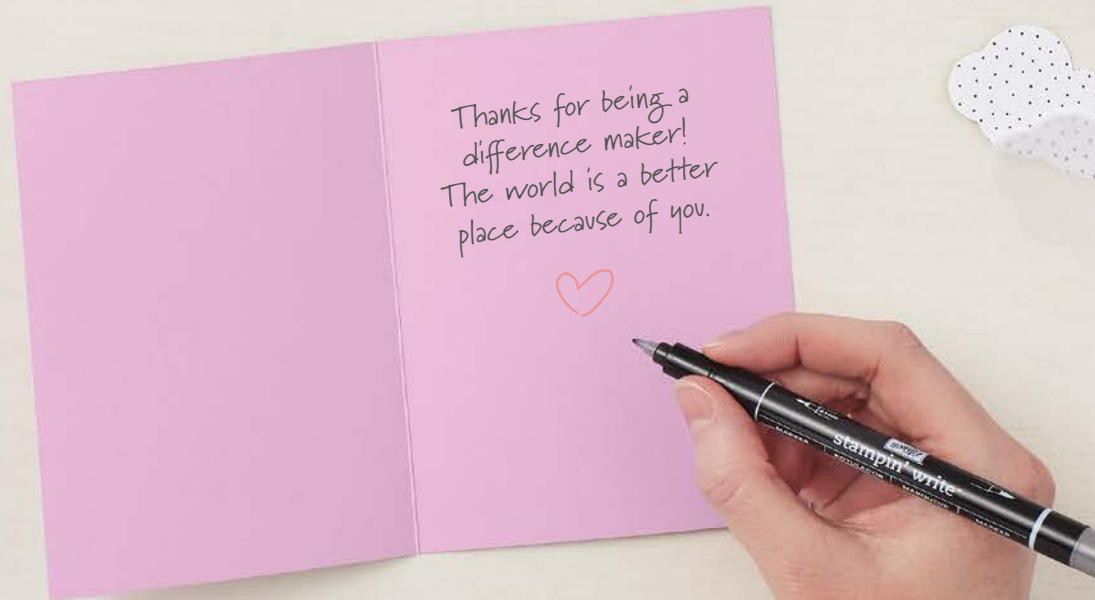 Thanks for being a
difference maker!
The world is a better
place because of you.
stampin' write
MARKER